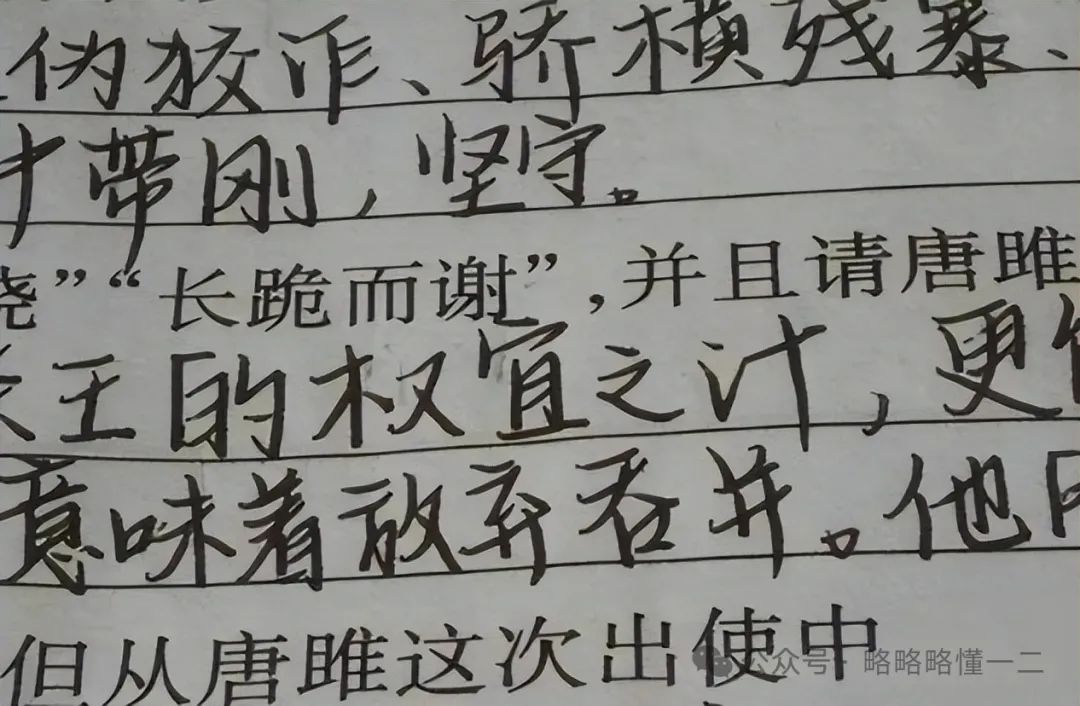 伪狡诈、骄横残暴、
带刚，坚守。
挠”“长跪而谢”，并且请唐雎
王的权宜之计，更
意味着放弃吞并。他
但从唐雎这次出使中
公众号·略略略懂一二